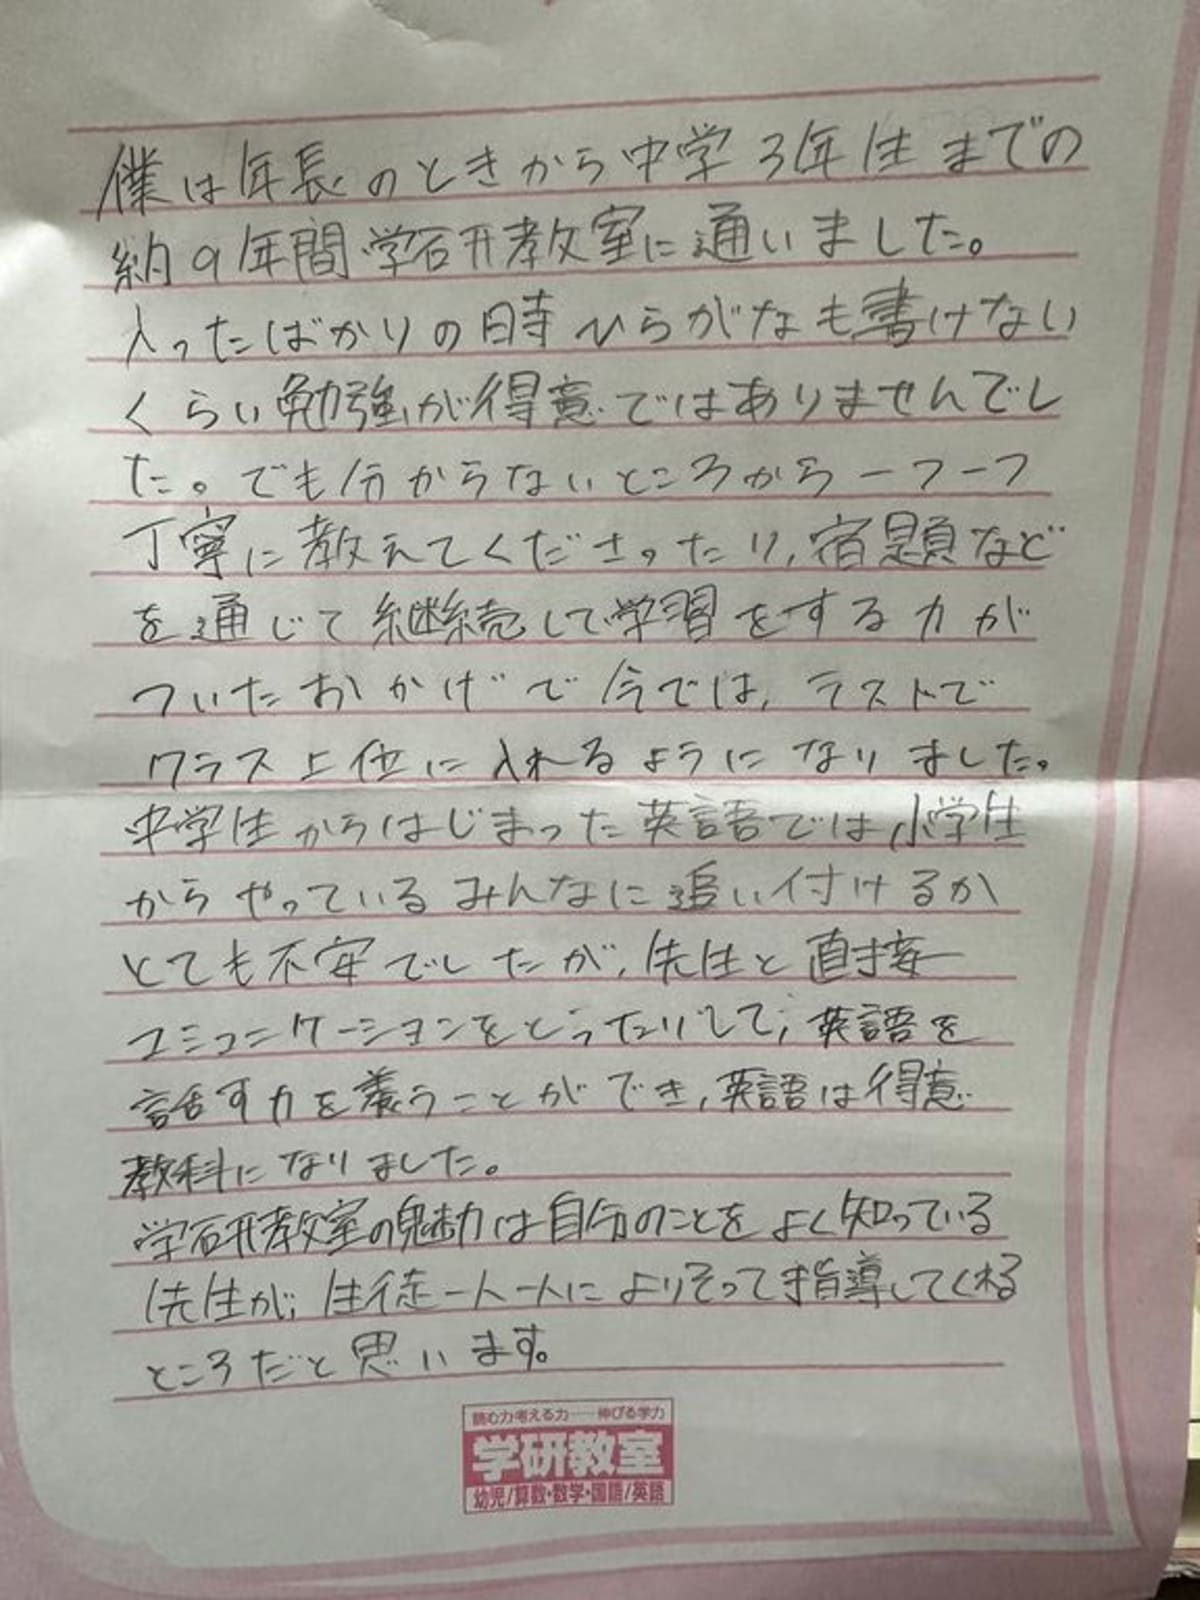 僕は年長のときから中学3年生までの
約9年間学研教室に通いました。
入ったばかりの時ひらがなも書けない
くらい勉強が得意ではありませんでし
た。でも分からないところから一つ一つ
丁寧に教えてくださったり、宿題など
を通じて継続して学習をする力が
ついたおかげで今では、テストで
クラス上位に入れるようになりました。
中学生からはじまった英語では、小学生
からやっているみんなに追い付けるか
とても不安でしたが、先生と直接
コミュニケーションをとったりして、英語を
話す力を養うことができ、英語は得意
教科になりました。
学研教室の魅力は自分のことをよく知っている
先生が、生徒一人一人によりそって指導してくれる
ところだと思います。
読む力考える力……伸びる学力
学研教室
幼児/算数・数学・国語/英語